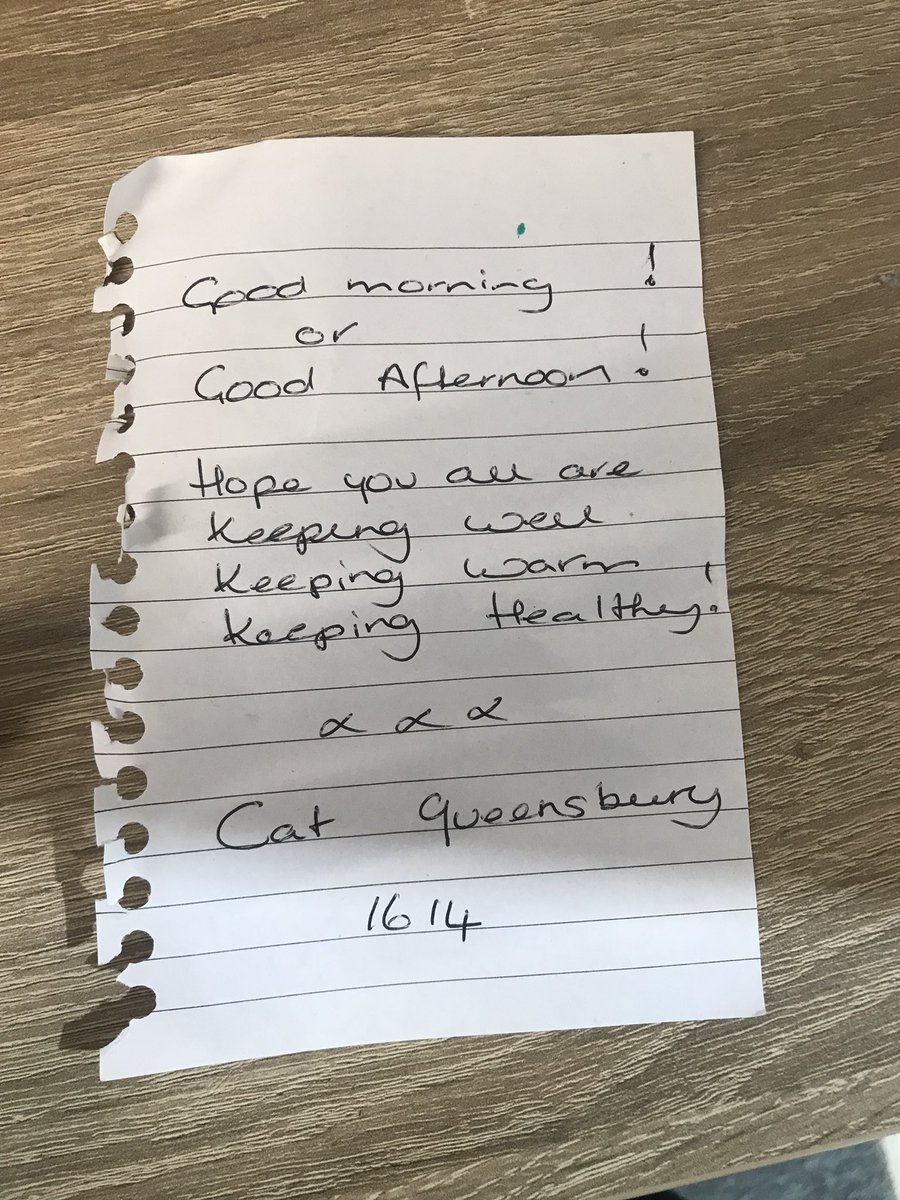 Good morning !
or
Good Afternoon !
Hope you all are
keeping well
keeping warm
keeping Healthy!
x x x
Cat Queensbury
1614